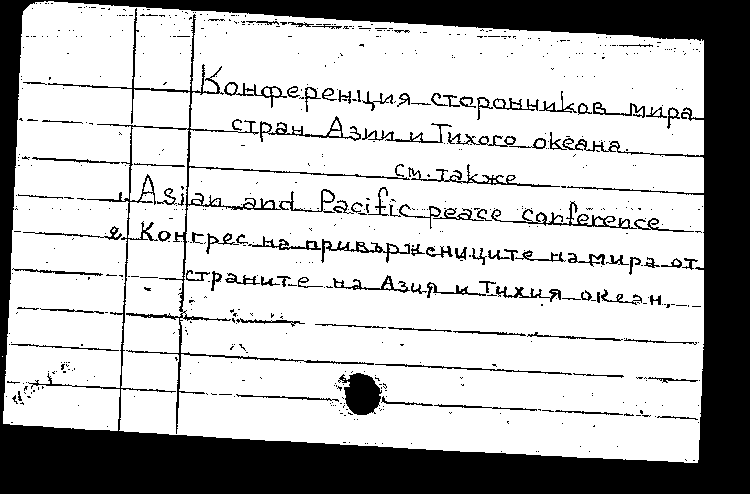 Конференция сторонников мира
стран Азии и Тихого океана.
см. также
1. Asian and Pacific peace conference
2. Конгрес на привържениците на мира от
страните на Азия и Тихия океан.